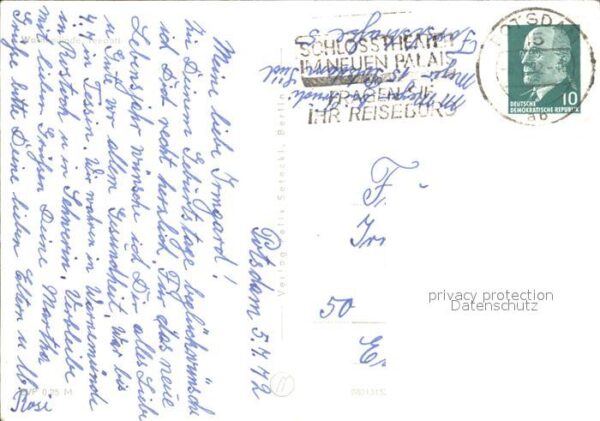 Potsdam 5.7.72
Meine liebe Irmgard!
Zu Deinem Geburtstage beglückwünsch
ich Dich recht herzlich. Für das neue
Lebensjahr wünsche ich Dir alles Liebe
u Gute vor allem Gesundheit. War bis
4.7 in Tessin. Wir waren in Warnemünde
in Rostock u in Schwerin. Verbleibe
mit lieben Grüßen Deine Martha
Grüße bitte Deine lieben Eltern u
Rosi
SCHLOSSTHEATER
IM NEUEN PALAIS
FRAGEN SIE
IHR REISEBÜRO
POTSDAM
15
DEUTSCHE
DEMOKRATISCHE REPUBLIK
10
Verlag Felix Setecki, Berlin
F.
Ir
50
E
privacy protection
Datenschutz
EVP 0,25 M